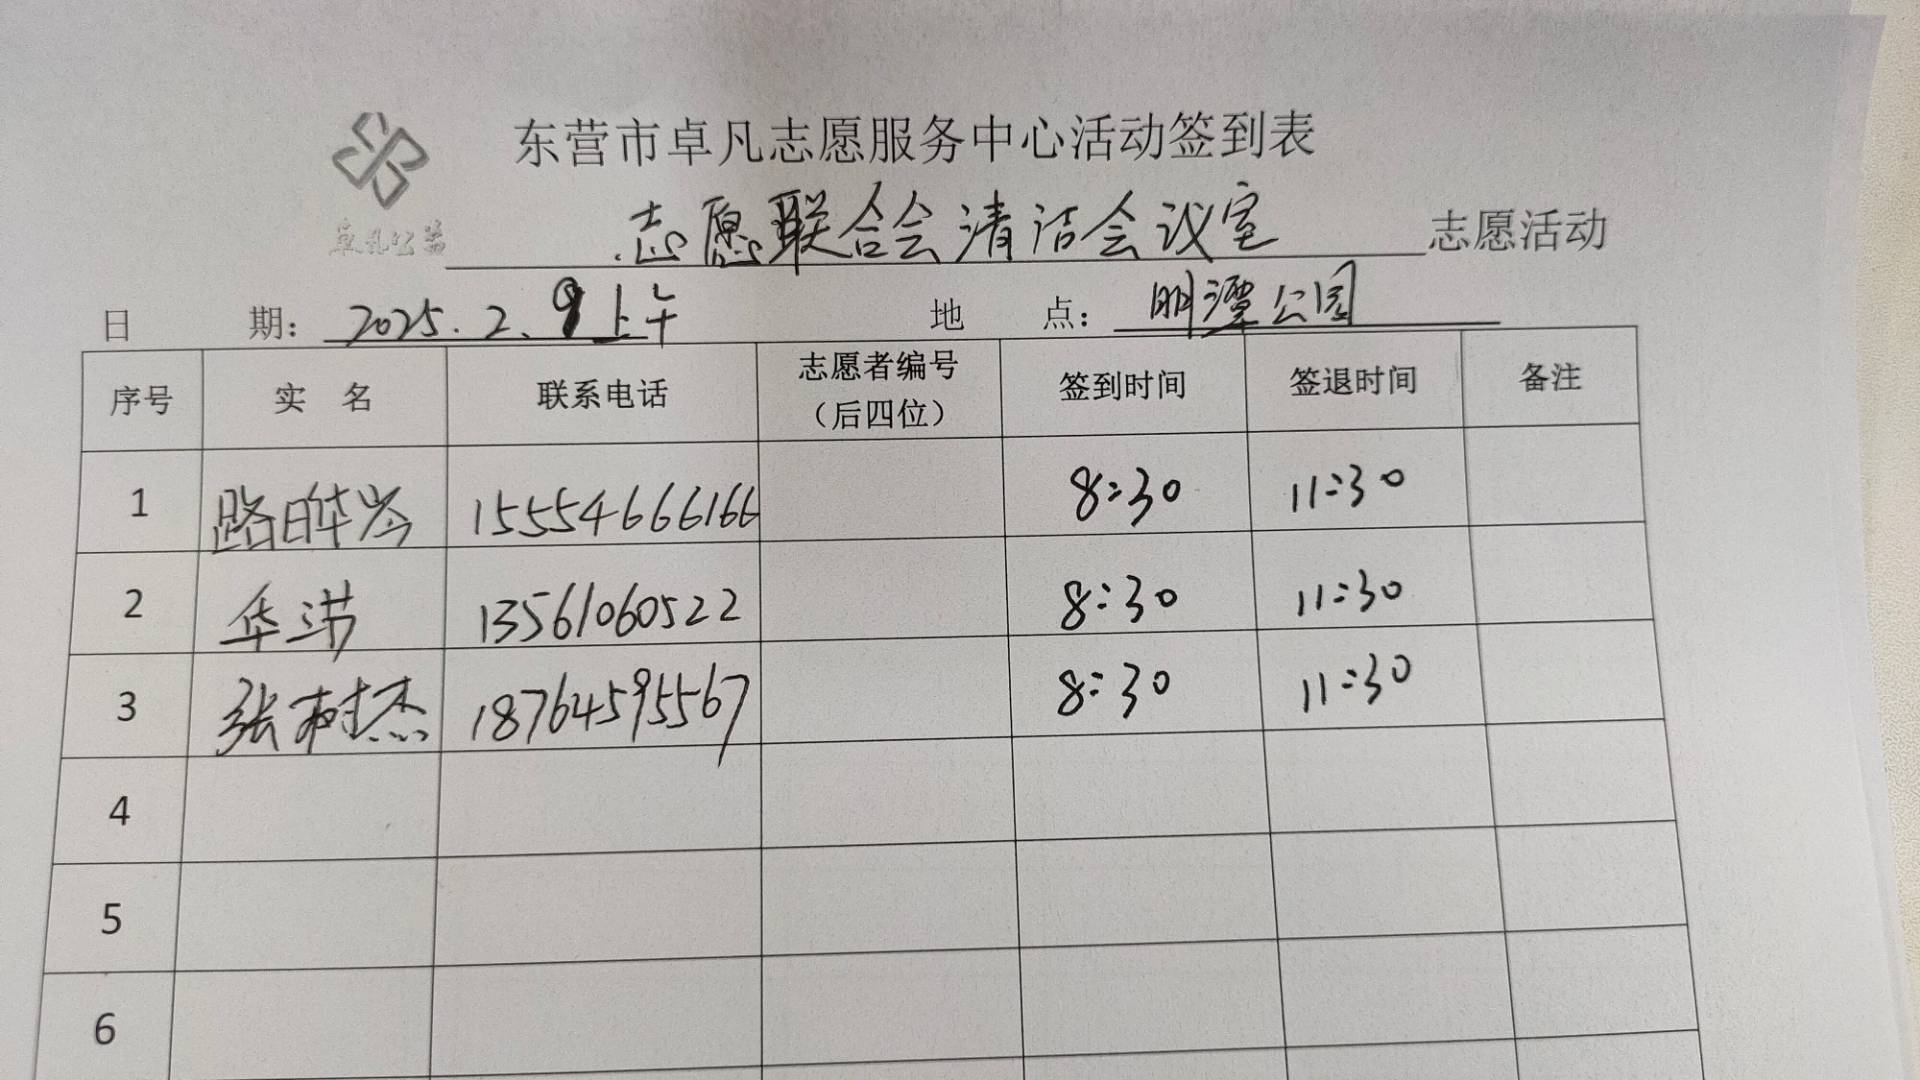 东营市卓凡志愿服务中心活动签到表
卓凡公益
志愿联合会清洁会议室 志愿活动
日 期：2025.2.9上午 地 点：明潭公园
序号 实 名 联系电话 志愿者编号（后四位） 签到时间 签退时间 备注
1 路晔 15554666166 8:30 11:30
2 华 13561060522 8:30 11:30
3 张树杰 18764595567 8:30 11:30
4
5
6